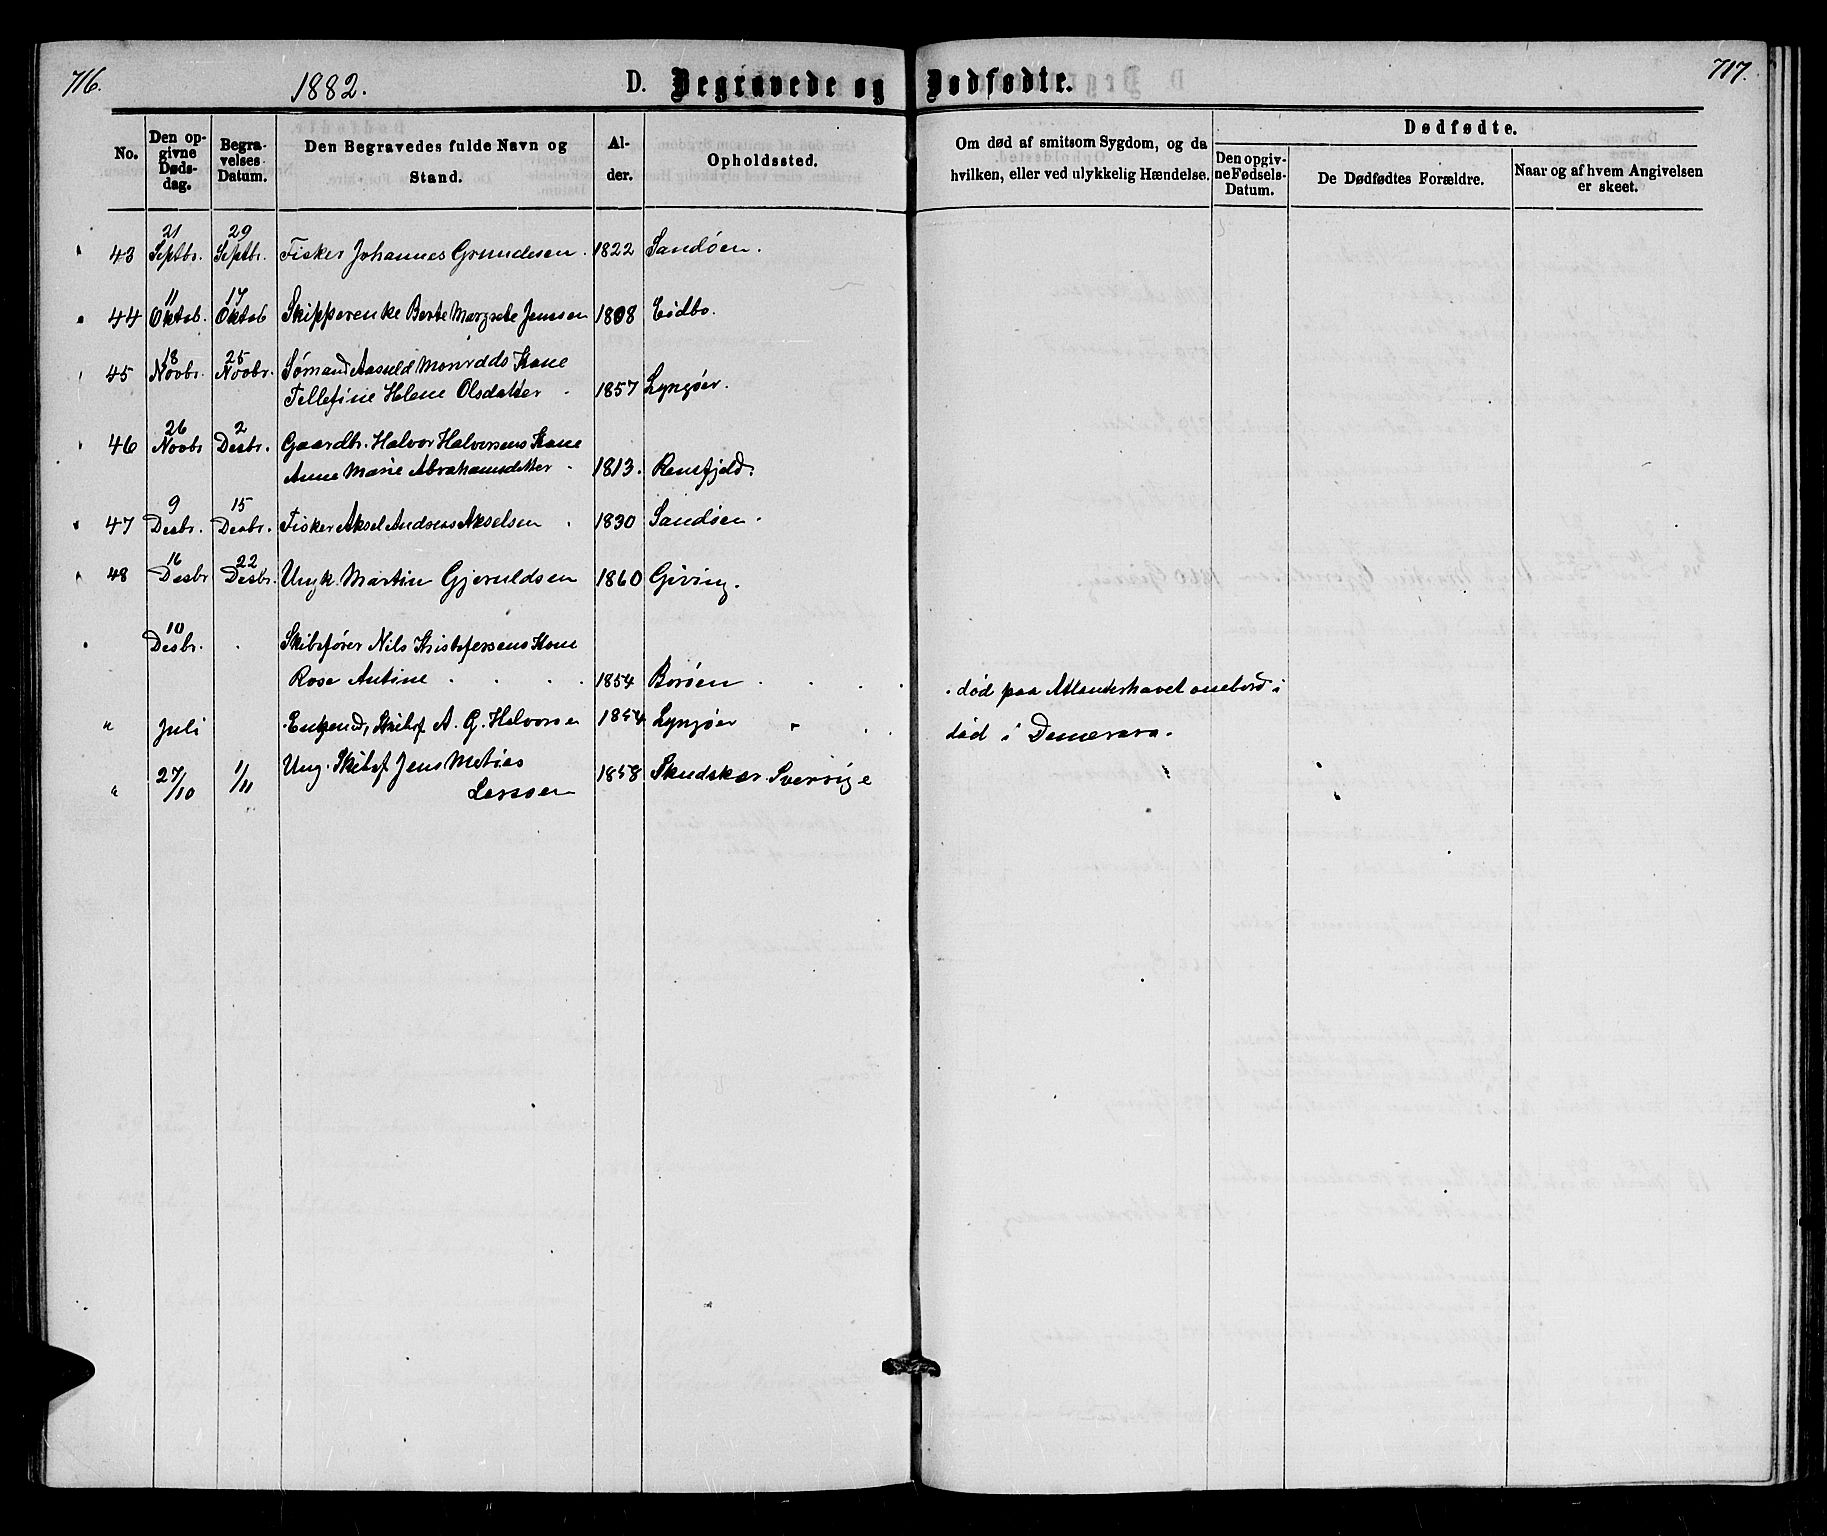 716.
1882.
D. Begravede og Dødfødte.
717.
No.
Den op-
givne
Døds-
dag.
Begra-
velses
Datum.
Den Begravedes fulde Navn og
Stand.
Al-
der.
Opholdssted.
Om død af smitsom Sygdom, og da
hvilken, eller ved ulykkelig Hændelse.
Dødfødte.
Den opgiv-
ne Fødsels-
Datum.
De Dødfødtes Forældre.
Naar og af hvem Angivelsen
er skeet.
21 29
43 Septbr. Septbr. Fisker Johannes Grundesen . 1822 Sandøen .
11 17
44 Oktob. Oktob Skipperenke Berte Margrete Jenssen 1808 Eidbo.
18 25
45 Novbr. Novbr. Sømand Aasuld Monrads Kone
Tellefine Helene Olsdatter . 1857 Lyngøer.
26 2
46 Novbr Desbr. Gaardbr. Halvor Halvorsens Kone
Anne Marie Abrahamsdatter . 1813. Rensfjeld.
9 15
47 Desbr. Desbr. Fisker Aksel Andreas Akselsen . 1830 Sandøen .
16 22
48 Desbr Desbr. Ungk. Martin Gjeruldsen 1860 Giving.
10
Desbr. . Skibsfører Nils Kristofersens Kone
Rose Antine . . . . 1854 Borøen . . . . død paa Atlanterhavet ombord i
" Juli Enkemd, Skibsf. A. G. Halvorsen 1854 Lyngøer " . død i Demerara.
" 27/10 1/11 Ung. Skibsf. Jens Matias
Larssen 1858 Skudskar Sverrig e